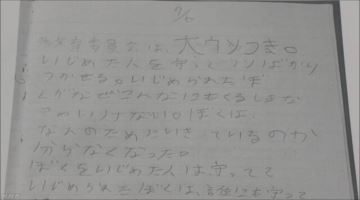 9/6
教育委員会は、大ウソつき。
いじめた人を守ってウソばかり
つかせる。いじめられたぼ
くがなぜこんなにもくるしまな
きゃいけない。ぼくは、
なんのためにいきているのか
分からなくなった。
ぼくをいじめた人は守ってて
いじめられたぼくは、誰にも守って